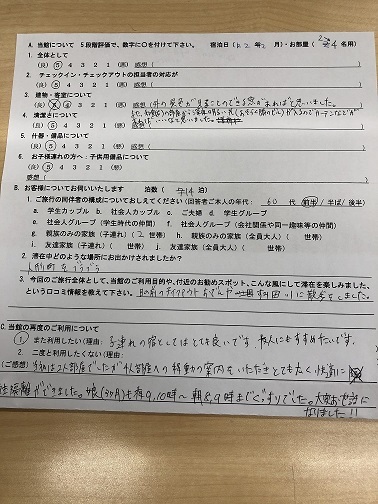 A. 当館について 5段階評価で、数字に○を付けて下さい。 宿泊日( R.2 年 2 月)・お部屋( 4 名用)
1. 全体として
(良) 5 4 3 2 1 (悪) 感想(
2. チェックイン・チェックアウトの担当者の対応が
(良) 5 4 3 2 1 (悪) 感想(
3. 建物・客室について
(良) 5 4 3 2 1 (悪) 感想(外の景色が見ることのできる窓があればと思いました。
4. 清潔さについて
(良) 5 4 3 2 1 (悪) 感想(
5. 什器・備品について
(良) 5 4 3 2 1 (悪) 感想(
6. お子様連れの方へ:子供用備品について
(良) 5 4 3 2 1 (悪) 感想(
B. お客様についてお伺いいたします 泊数( 泊)
1. ご旅行の同伴者の構成についておしえてください(回答者ご本人の年代: 60 代 前半 / 半ば / 後半)
a. 学生カップル b. 社会人カップル c. ご夫婦 d. 学生グループ
e. 社会人グループ(学生時代の仲間) f. 社会人グループ(会社関係や同一趣味等の仲間)
g. 親族のみの家族(子連れ)( 2 世帯) h. 親族のみの家族(全員大人)( 世帯)
i. 友達家族(子連れ)( 世帯) j. 友達家族(全員大人)( 世帯)
2. 滞在中どのような場所にお出かけされましたか?
人形町をうろうろ
3. 今回のご旅行全体として、当館のご利用目的や、付近のお勧めスポット、こんな風にして滞在を楽しみました、
という口コミ情報を教えて下さい。 目の前のテイクアウト おでんや 川に散歩をしました。
C. 当館の再度のご利用について
1. また利用したい(理由: 子連れの宿としてはとても良いです、友人にもすすめたいです。
2. 二度と利用したくない(理由:
(ご感想) 2人部屋でしたが 4人部屋への移動の案内をいただきとても広く快適に
ができました。娘(3ヶ月)も夜9,10時〜朝8,9時までぐっすりでした。大変お世話に
なりました!!